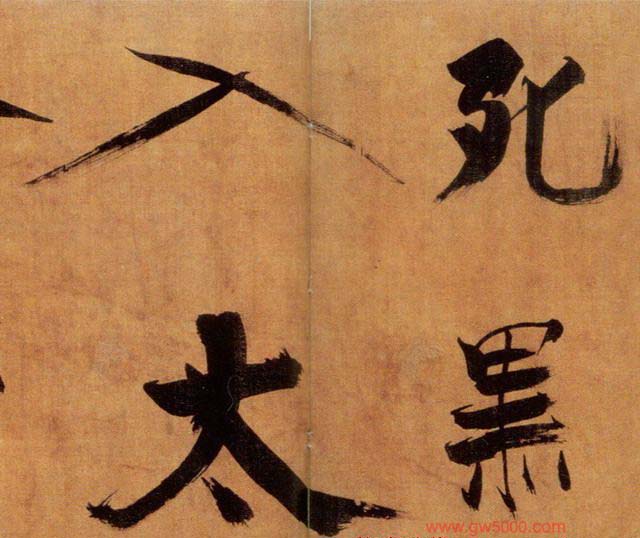 死黑
入太
www.gw5000.com